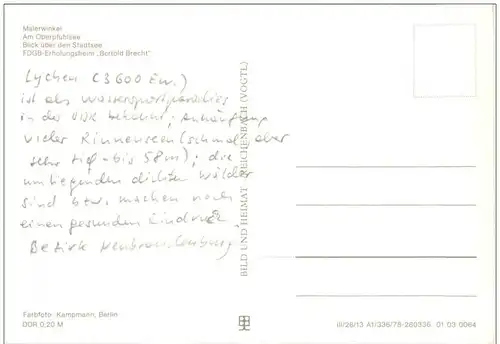 Malerwinkel
Am Oberpfuhlsee
Blick über den Stadtsee
FDGB-Erholungsheim „Bertold Brecht“
Lychen (3600 Ew.)
ist als Wassersportparadies
in der DDR bekannt; Anhäufung
vieler Rinnenseen (schmal aber
sehr tief - bis 58m); die
umliegenden dichten Wälder
sind bzw. machen noch
einen gesunden Eindruck.
Bezirk Neubrandenburg
BILD UND HEIMAT REICHENBACH (VOGTL)
Farbfoto: Kampmann, Berlin
DDR 0,20 M
III/26/13 A1/336/78-280336 01 03 0064